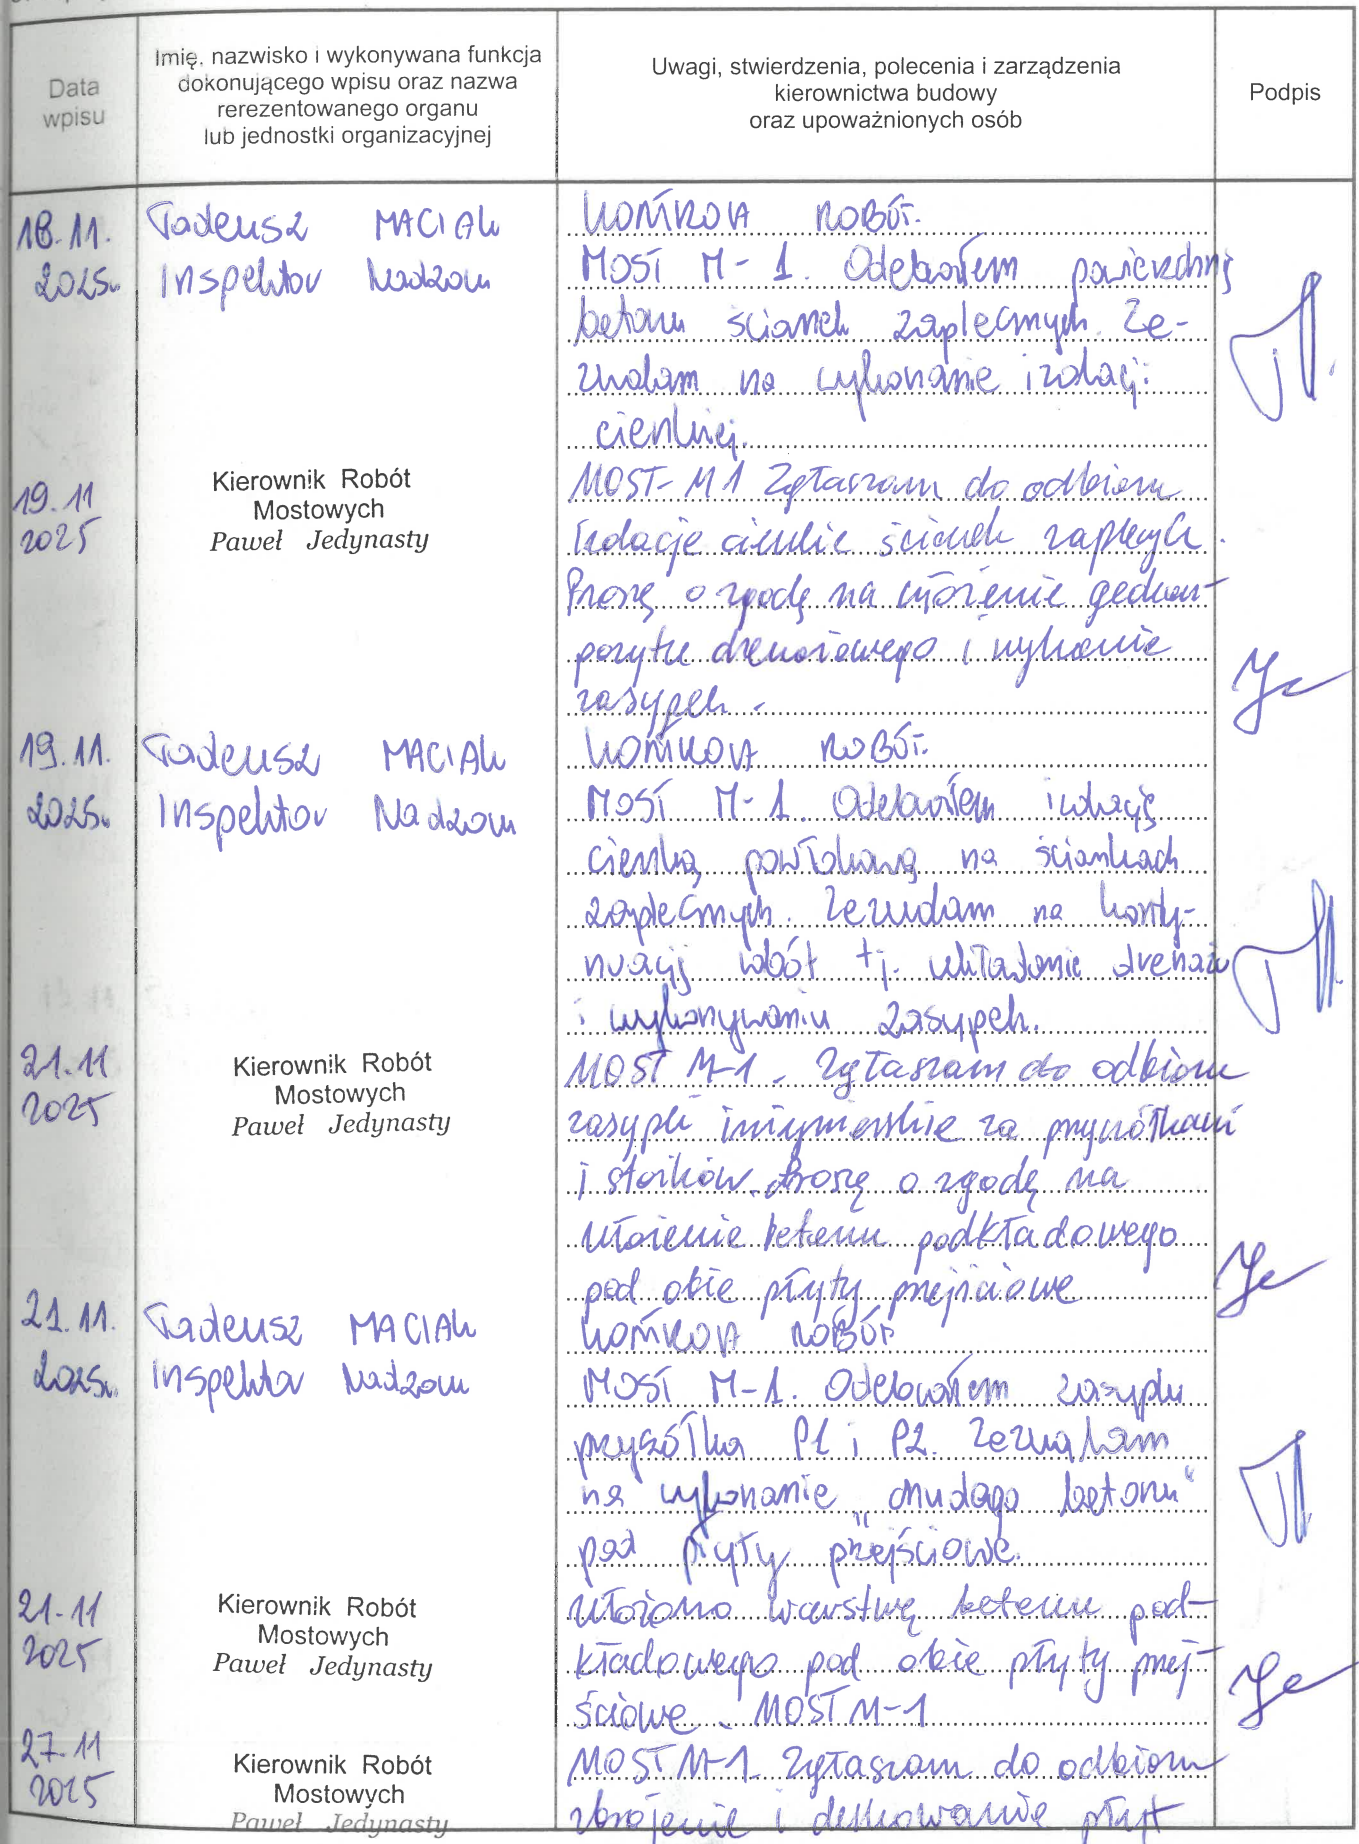 Data
wpisu
Imię, nazwisko i wykonywana funkcja
dokonującego wpisu oraz nazwa
rerezentowanego organu
lub jednostki organizacyjnej
Uwagi, stwierdzenia, polecenia i zarządzenia
kierownictwa budowy
oraz upoważnionych osób
Podpis
18.11.
2025r.
Tadeusz MACIAK
Inspektor Nadzoru
KONTROLA ROBÓT.
MOST M-1. Odebrałem powierzchnię
betonu ścianek zaplecznych. Ze-
zwalam na wykonanie izolacji
cienkiej.
19.11
2025
Kierownik Robót
Mostowych
Paweł Jedynasty
MOST-M1 Zgłaszam do odbioru
Izolacje cienkie ścianek zaplecznych.
Proszę o zgodę na ułożenie geokom-
pozytu drenażowego i wykonanie
zasypek.
19.11.
2025r.
Tadeusz MACIAK
Inspektor Nadzoru
KONTROLA ROBÓT.
MOST M-1. Odebrałem izolację
cienką powłokową na ściankach
zaplecznych. Zezwalam na konty-
nuację robót tj. układanie drenażu
i wykonywaniu zasypek.
21.11
2025
Kierownik Robót
Mostowych
Paweł Jedynasty
MOST M-1. Zgłaszam do odbioru
zasypki inżynierskie za przyczółkami
i stożków. Proszę o zgodę na
ułożenie betonu podkładowego
pod obie płyty przejściowe
21.11.
2025r.
Tadeusz MACIAK
Inspektor Nadzoru
KONTROLA ROBÓT
MOST M-1. Odebrałem zasypkę
przyczółka P1 i P2. Zezwalam
na wykonanie „chudego betonu"
pod płyty przejściowe.
21.11
2025
Kierownik Robót
Mostowych
Paweł Jedynasty
Ułożono warstwę betonu pod-
kładowego pod obie płyty przej-
ściowe. MOST M-1
27.11
2025
Kierownik Robót
Mostowych
Paweł Jedynasty
MOST M-1 Zgłaszam do odbioru
zbrojenie i deskowanie płyt